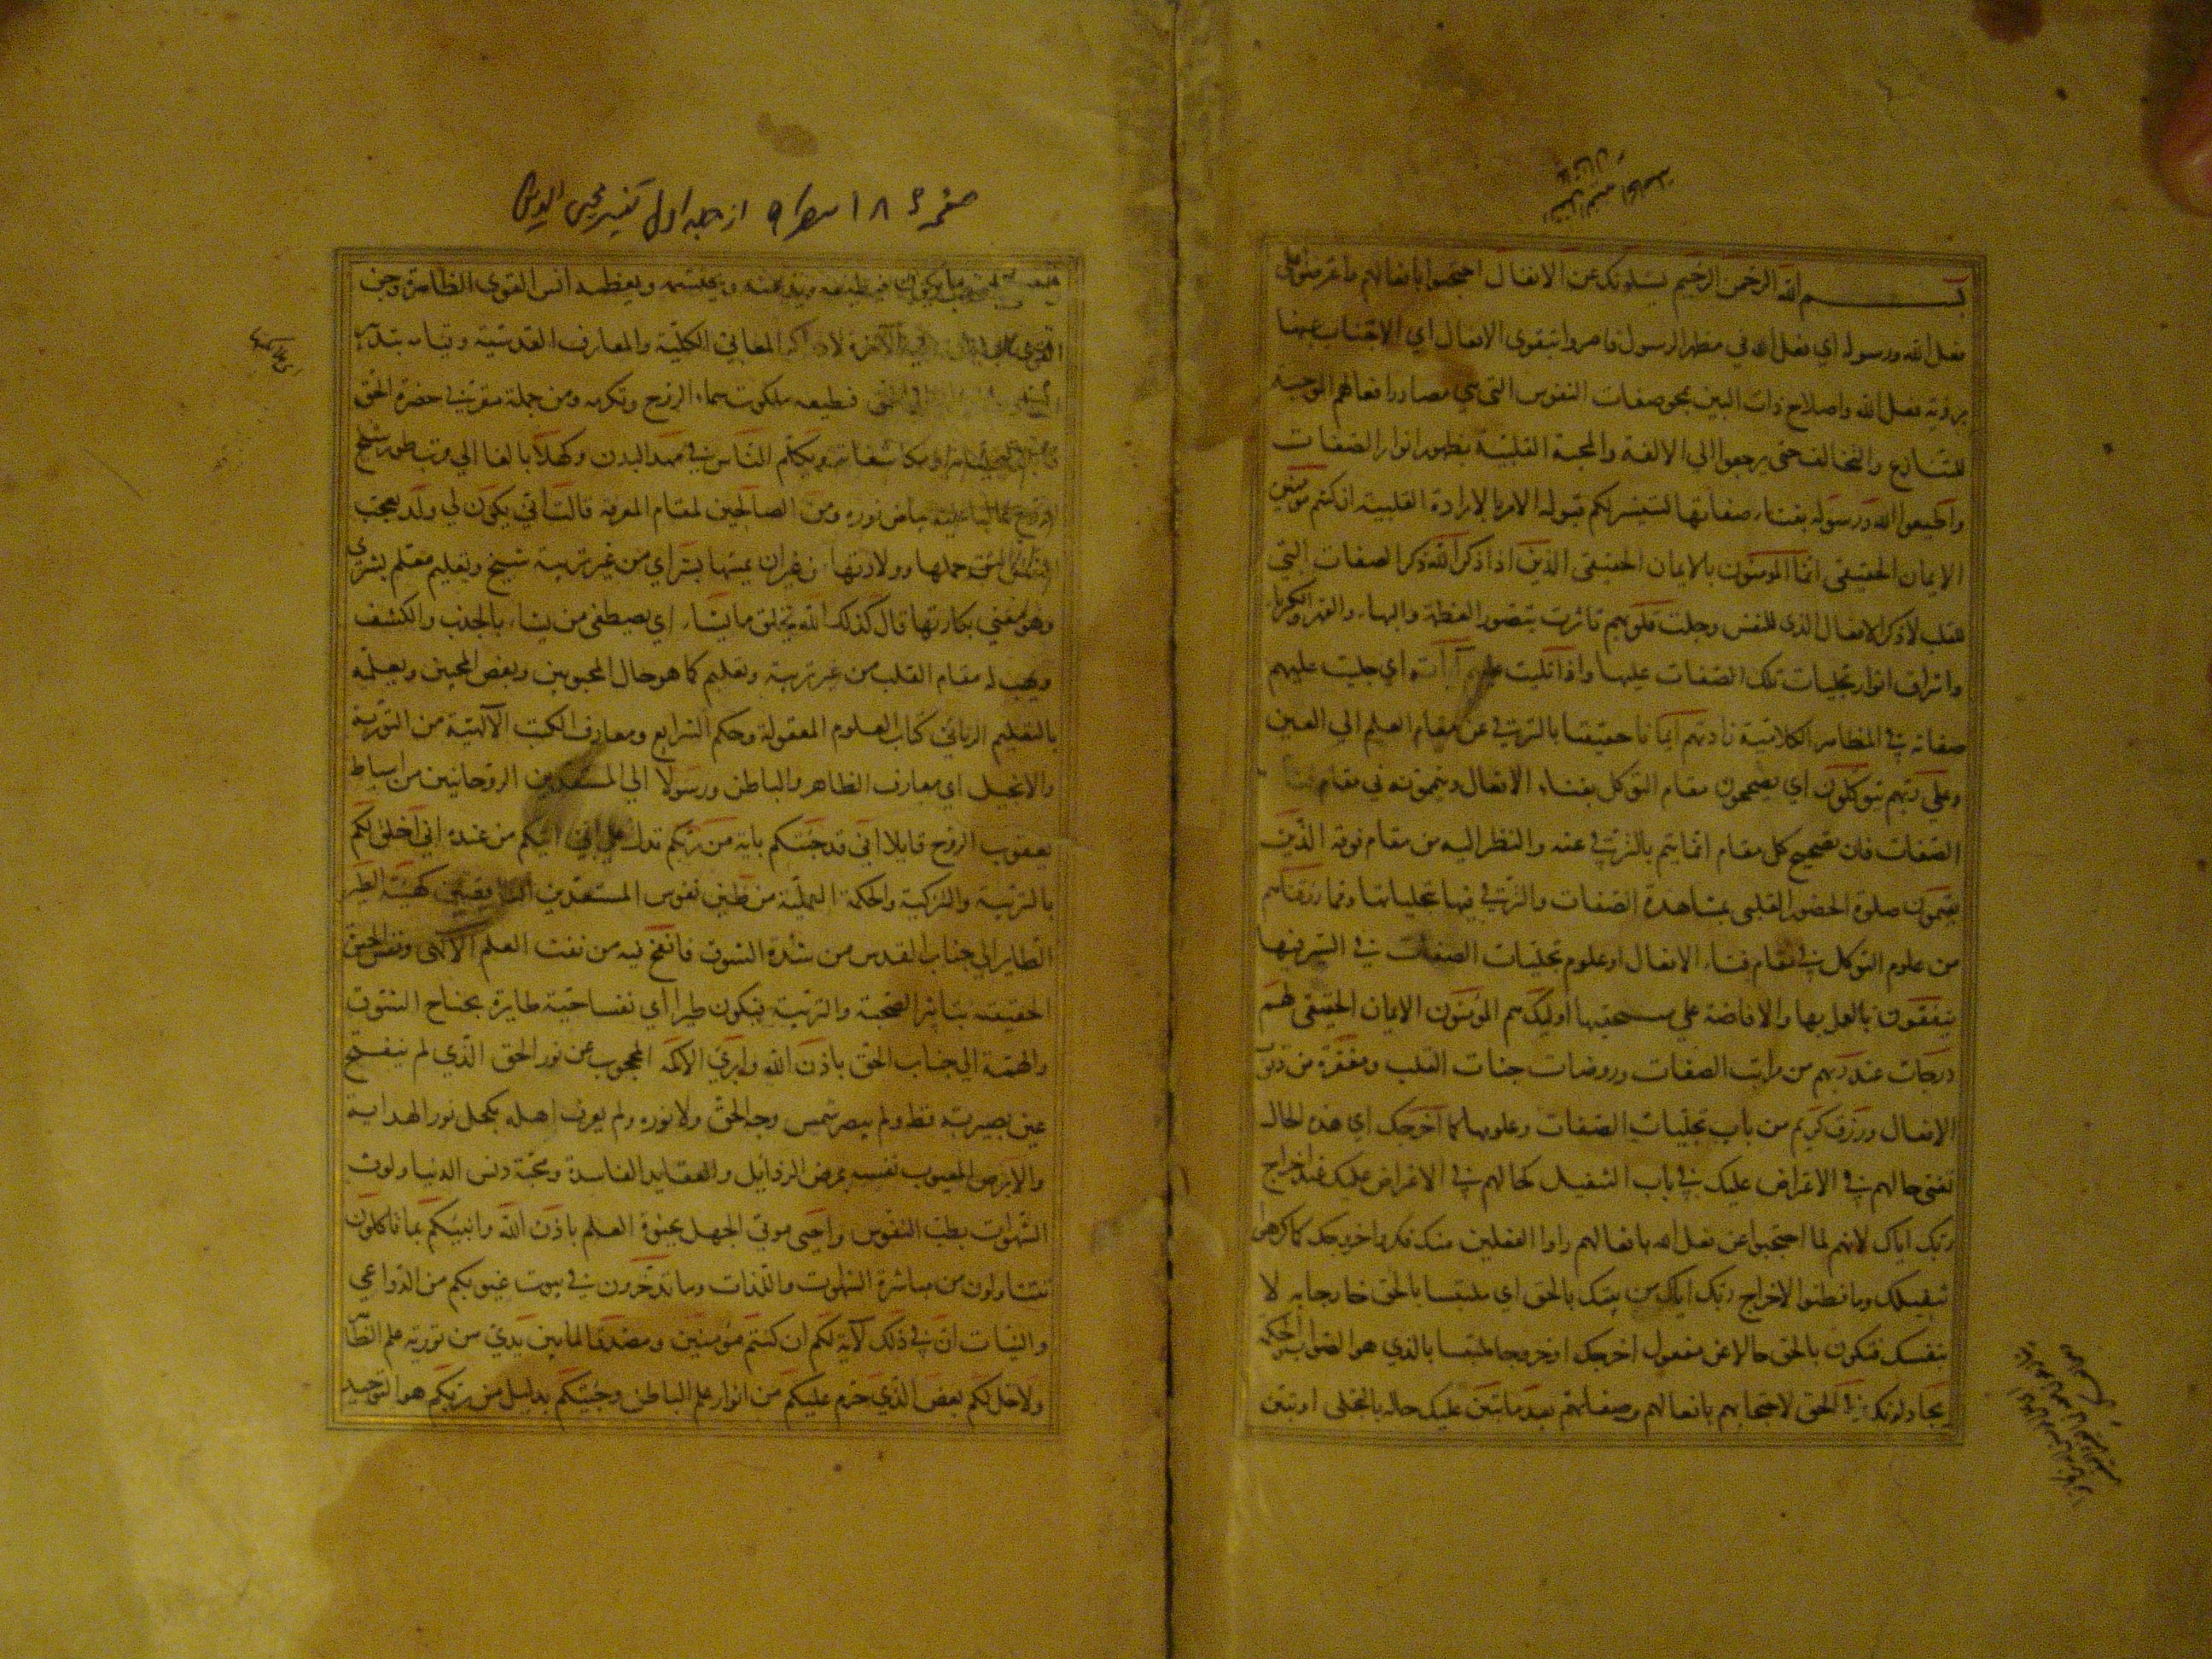 بسم الله الرحمن الرحيم يسئلونك عن الانفال احتجبوا بافعالهم فاعترضوا على
فعل الله ورسوله اي فعل الله في مظهر الرسول فامروا بتقوى الافعال اي الاجتناب عنها
برؤية فعل الله واصلاح ذات البين بمحو صفات النفوس التي هي مصادر افعالهم الموجبة
للتنازع والتخالف حتى يرجعوا الى الالفة والمحبة القلبية بظهور انوار الصفات
واطيعوا الله ورسوله بفناء صفاتها لتيسر لكم قبوله الامر بالارادة القلبية ان كنتم مؤمنين
الايمان الحقيقي انما المؤمنون بالايمان الحقيقي الذين اذا ذكر الله ذكر الصفات التي
للقلب لا ذكر الافعال الذي للنفس وجلت قلوبهم تاثرت بتصور العظمة والبهاء والقهر والكبرياء
واشراق انوار تجليات تلك الصفات عليها واذا تليت عليهم آياته اي جليت عليهم
صفاته في المظاهر الكلامية زادتهم ايمانا حقيقيا بالترقي عن مقام العلم الى العين
وعلى ربهم يتوكلون اي يصححون مقام التوكل بفناء الافعال ويتمونه في مقام
الصفات فان تصحيح كل مقام انما يتم بالترقي عنه والنظر اليه من مقام فوقه الذين
يقيمون صلوة الحضور القلبي بمشاهدة الصفات والترقي فيها بتجلياتها ومما رزقناهم
من علوم التوكل في مقام فناء الافعال او علوم تجليات الصفات في السير فيها
ينفقون بالعمل بها والافاضة على مستحقيها اوليك هم المؤمنون الايمان الحقيقي لهم
درجات عند ربهم من مراتب الصفات وروضات جنات القلب ومغفرة من ذنوب
الافعال ورزق كريم من باب تجليات الصفات وعلومها كما اخرجك اي هذه الحال
تعني حالهم في الاعتراض عليك في باب التنفيل كحالهم في الاعتراض عليك عند اخراج
ربك اياك لانهم لما احتجبوا عن فعل الله بافعالهم راوا الفعلين منك فكرهوا خروجك كما كرهوا
تنفيلك وما فطنوا لاخراج ربك اياك من بيتك بالحق اي ملتبسا بالحق خارجا به لا
بنفسك فتكون بالحق حالا عن مفعول اخرجك او خروجا ملتبسا بالذي هو الصواب والحكمة
يجادلونك في الحق لاحتجابهم بافعالهم وصفاتهم بعد ما تبين عليك حاله بالتجلي او تبين
صفحه ۱۸۶ سطر ۹ از جلد اول تفسير محيى الدين
ويعظمه انس القوى الظاهرة وجن
المعاني الكلية والمعارف القدسية
فيطيعه ملكوت سماء الروح وتكرمه ومن جملة مقربي حضرة الحق
ويكلم الناس في مهد البدن وكهلا بالغا الى قرب طور شيخ
ومن الصالحين لمقام المعرفة قالت اني يكون لي ولد تعجب
حملها وولادتها من غير ان يمسها بشر اي من غير تربية شيخ وتعليم معلم بشري
وهو معني بكارتها قال كذلك الله يخلق ما يشاء اي يصطفى من يشاء بالجذب والكشف
ويهب له مقام القلب من غير تربية وتعليم كما هو حال المحبوبين وبعض المحبين ويعلمه
بالتعليم الرباني كتاب العلوم المعقولة وحكم الشرايع ومعارف الكتب الالهية من التورية
والانجيل اي معارف الظاهر والباطن ورسولا الى المستعدين الروحانيين من اسباط
يعقوب الروح قايلا اني قد جئتكم باية من ربكم تدل على اني اتيكم من عنده اني اخلق لكم
بالتربية والتزكية والحكمة العملية من طين نفوس المستعدين الناقصين كهيئة الطير
الطاير الى جناب القدس من شدة الشوق فانفخ فيه من نفث العلم الالهى ونفس الحيوة
الحقيقية بتاثير الصحبة والتربية فيكون طيرا اي نفسا حية طايرة بجناح الشوق
والهمة الى جناب الحق باذن الله وابرئ الاكمه المحجوب عن نور الحق الذي لم ينفتح
عين بصيرته قط ولم يبصر شمس وجه الحق ولا نوره ولم يعرف اهله بكحل نور الهداية
والابرص المعيوب نفسه بمرض الرذايل والعقايد الفاسدة ومحبة دنس الدنيا ولوث
الشهوات بطب النفوس واحيى موتي الجهل بحيوة العلم باذن الله وانبئكم بما تاكلون
تتناولون من مباشرة الشهوات واللذات وما تدخرون في بيوت غيوبكم من الدواعي
والنيات ان في ذلك لآية لكم ان كنتم مؤمنين ومصدقا لما بين يدي من تورية علم الظاهر
ولاحل لكم بعض الذي حرم عليكم من انوار علم الباطن وجئتكم بدليل من ربكم هو التوحيد